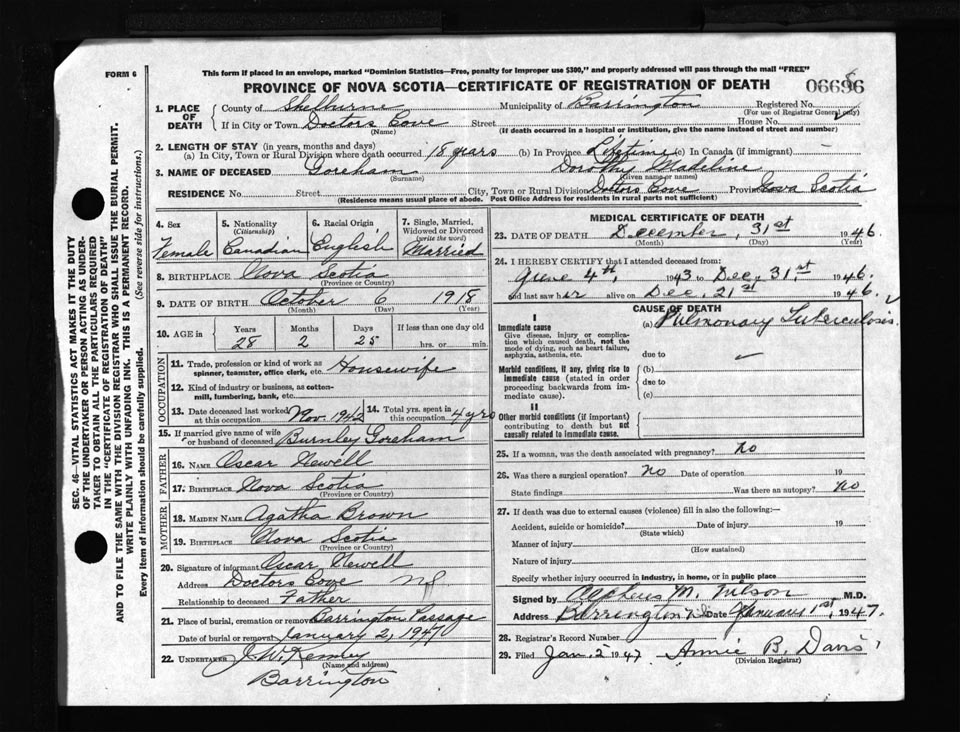 FORM 6
This form if placed in an envelope, marked "Dominion Statistics—Free, penalty for improper use $300," and properly addressed will pass through the mail "FREE"
PROVINCE OF NOVA SCOTIA—CERTIFICATE OF REGISTRATION OF DEATH
1. PLACE OF DEATH { County of Shelburne Municipality of Barrington Registered No.
(For use of Registrar General only)
If in City or Town Doctors Cove Street House No.
(Name) (If death occurred in a hospital or institution, give the name instead of street and number)
2. LENGTH OF STAY (in years, months and days)
(a) In City, Town or Rural Division where death occurred 18 years (b) In Province Lifetime (c) In Canada (if immigrant) —
3. NAME OF DECEASED Goreham Dorothy Madeline
(Surname) (Given name or names)
RESIDENCE No. Street City, Town or Rural Division Doctors Cove Province Nova Scotia
(Residence means usual place of abode. Post Office Address for residents in rural parts not sufficient)
4. Sex 5. Nationality (Citizenship) 6. Racial Origin 7. Single, Married, Widowed or Divorced (write the word)
Female Canadian English Married
8. BIRTHPLACE Nova Scotia
(Province or Country)
9. DATE OF BIRTH October 6 1918
(Month) (Day) (Year)
10. AGE in { Years Months Days If less than one day old
28 2 25 hrs. or min.
OCCUPATION
11. Trade, profession or kind of work as spinner, teamster, office clerk, etc. Housewife
12. Kind of industry or business, as cotton-mill, lumbering, bank, etc.
13. Date deceased last worked at this occupation Nov. 1942 14. Total yrs. spent in this occupation 4 yrs
15. If married give name of wife or husband of deceased Burnley Goreham
FATHER
16. NAME Oscar Newell
17. BIRTHPLACE Nova Scotia
(Province or Country)
MOTHER
18. MAIDEN NAME Agatha Brown
19. BIRTHPLACE Nova Scotia
(Province or Country)
20. Signature of informant Oscar Newell
Address Doctors Cove NS
Relationship to deceased Father
21. Place of burial, cremation or removal Barrington Passage
Date of burial or removal January 2, 1947
22. UNDERTAKER J. W. Kenney
(Name and address)
Barrington
MEDICAL CERTIFICATE OF DEATH
23. DATE OF DEATH December, 31st 1946.
(Month) (Day) (Year)
24. I HEREBY CERTIFY that I attended deceased from:
June 4th, 1943 to Dec. 31st 1946.
and last saw her alive on Dec. 21st 1946.
CAUSE OF DEATH
I
Immediate cause (a) Pulmonary Tuberculosis.
Give disease, injury or complication which caused death, not the mode of dying, such as heart failure, asphyxia, asthenia, etc.
due to
Morbid conditions, if any, giving rise to immediate cause (stated in order proceeding backwards from immediate cause).
(b)
due to
(c)
II
Other morbid conditions (if important) contributing to death but not causally related to immediate cause.
25. If a woman, was the death associated with pregnancy? No
26. Was there a surgical operation? No Date of operation 19
State findings Was there an autopsy? No
27. If death was due to external causes (violence) fill in also the following:—
Accident, suicide or homicide? Date of injury 19
(State which)
Manner of injury
(How sustained)
Nature of injury
Specify whether injury occurred in industry, in home, or in public place
Signed by Alpheus M. Wilson M.D.
Address Barrington N.S. Date January 1st, 1947.
28. Registrar's Record Number
29. Filed Jan. 2 1947 Annie B. Davis
(Division Registrar)
SEC. 46—VITAL STATISTICS ACT MAKES IT THE DUTY
OF THE UNDERTAKER OR PERSON ACTING AS UNDERTAKER
TO OBTAIN ALL THE PARTICULARS REQUIRED
IN THE "CERTIFICATE OF REGISTRATION OF DEATH"
AND TO FILE THE SAME WITH THE DIVISION REGISTRAR WHO SHALL ISSUE THE BURIAL PERMIT.
WRITE PLAINLY WITH UNFADING INK. THIS IS A PERMANENT RECORD.
Every item of information should be carefully supplied. (See reverse side for instructions.)